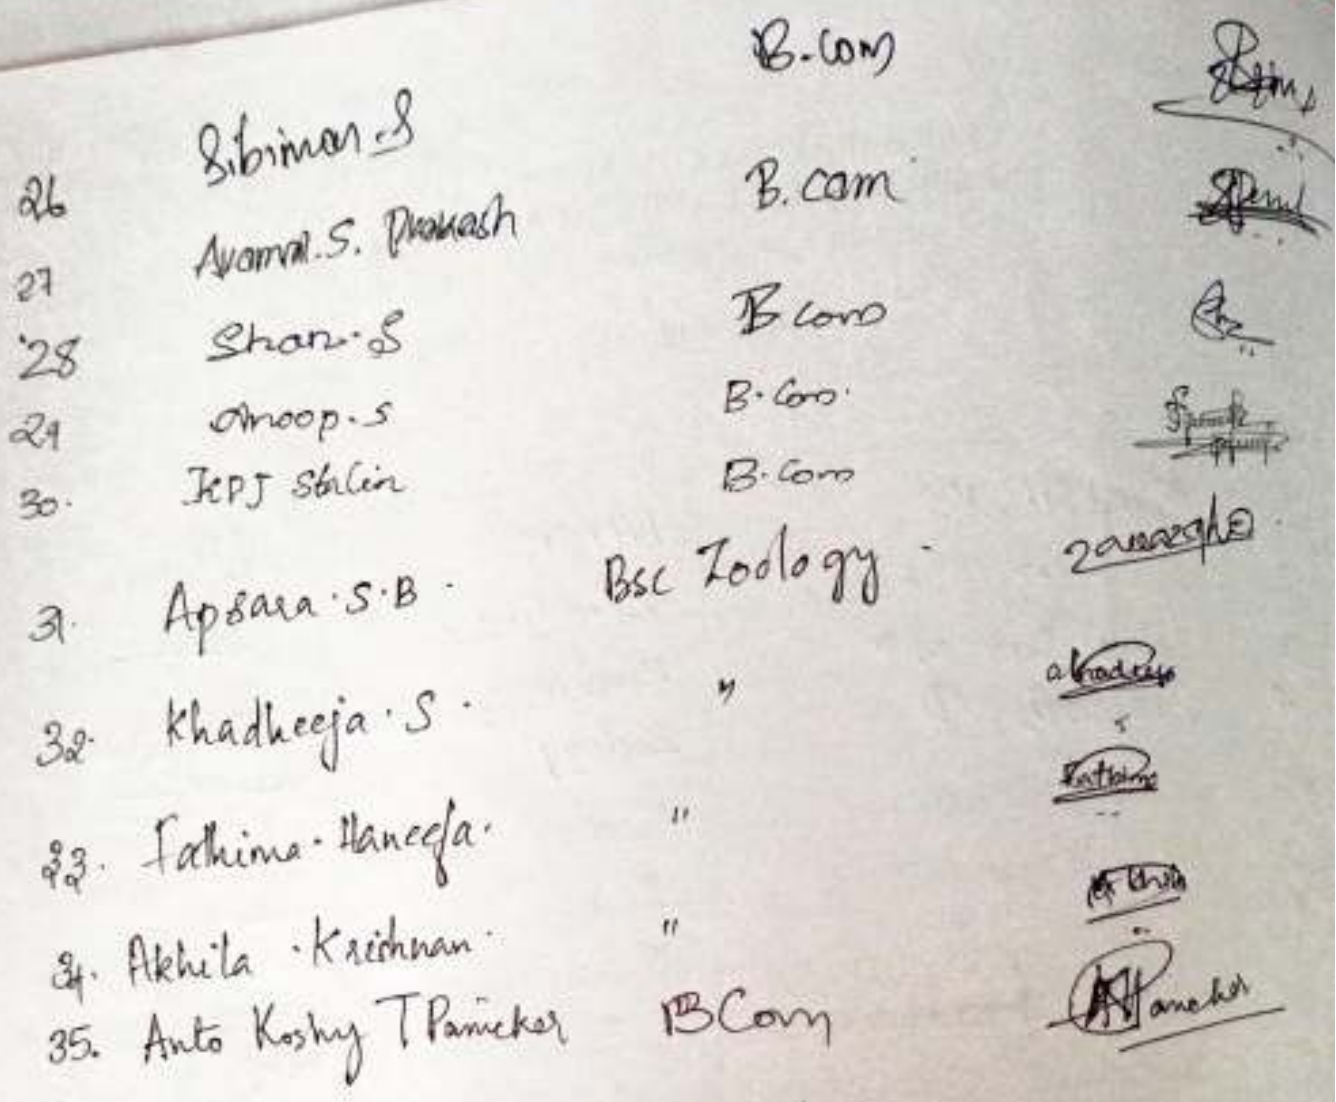 26 Sibiman.S B.Com
27 S. Prakash B.com
28 Shan.S B com
29 Anoop.S B.Com.
30. KPJ Stalin B.Com
31. Apsara.S.B. Bsc Zoology.
32. Khadheeja.S. "
33. Fathima.Haneefa. " Fathima
34. Akhila.Krishnan. " Akhila
35. Anto Koshy T Panicker B Com Panicker